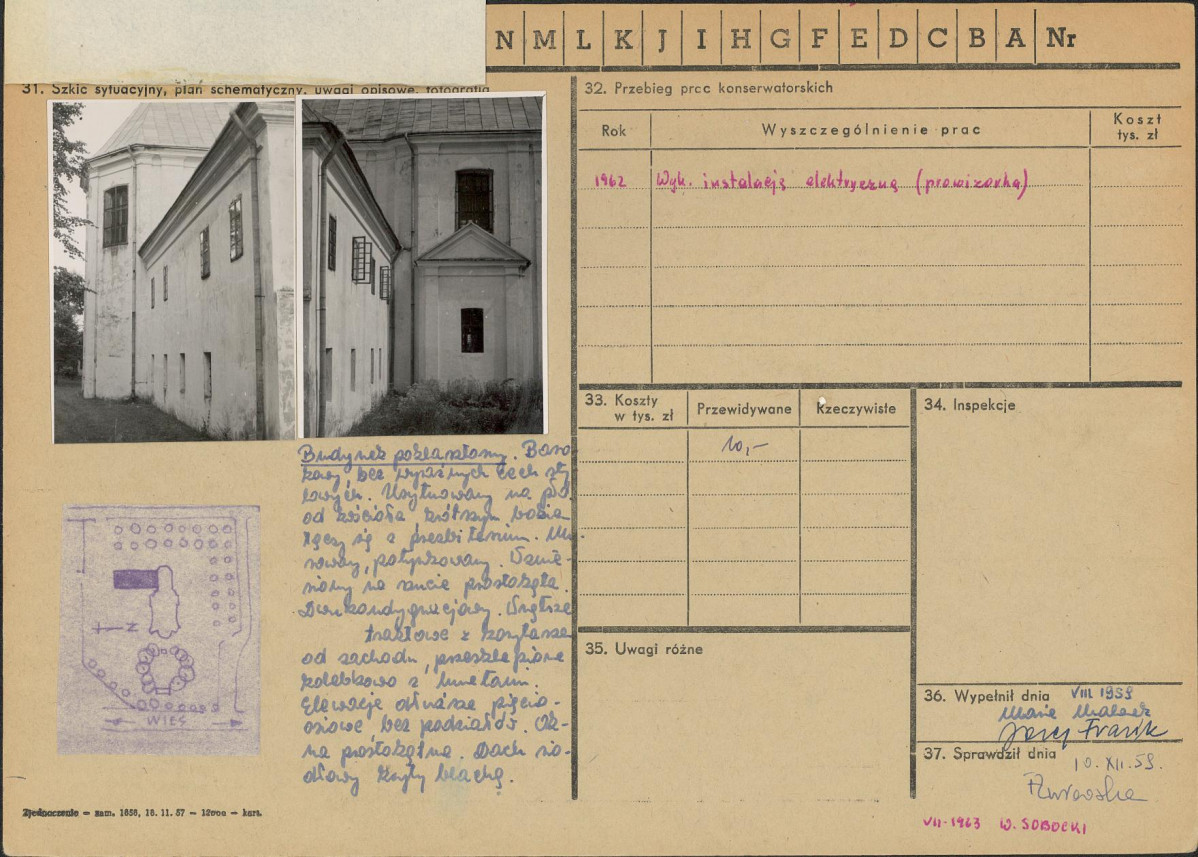 N M L K J I H G F E D C B A Nr
31. Szkic sytuacyjny, plan schematyczny, uwagi opisowe, fotografia
Budynek poklasztorny. Baro-
kowy, bez wyraźnych cech sty-
lowych. Usytuowany na płd.
od kościoła, krótszym bokiem
łączy się z prezbiterium. Mu-
rowany, potynkowany. Wznie-
siony na rzucie prostokąta.
Dwukondygnacjowy. Wnętrze
traktowe z korytarzem
od zachodu, przesklepione
kolebkowo z lunetami.
Elewacje dłuższe pięcio-
osiowe bez podziałów. Ok-
na prostokątne. Dach sio-
dłowy kryty blachą.
N
WIEŚ
Zjednoczenie — zam. 1658, 16. 11. 57 — 12000 — kart.
32. Przebieg prac konserwatorskich
Rok Wyszczególnienie prac Koszt tys. zł
1962 Wyk. instalację elektryczną (prowizorka)
33. Koszty w tys. zł Przewidywane Rzeczywiste
10,-
34. Inspekcje
35. Uwagi różne
36. Wypełnił dnia VIII 1959
Maria
Józef Frazik
37. Sprawdził dnia 10. XII. 59.
VII-1963 W. SOBOCKI